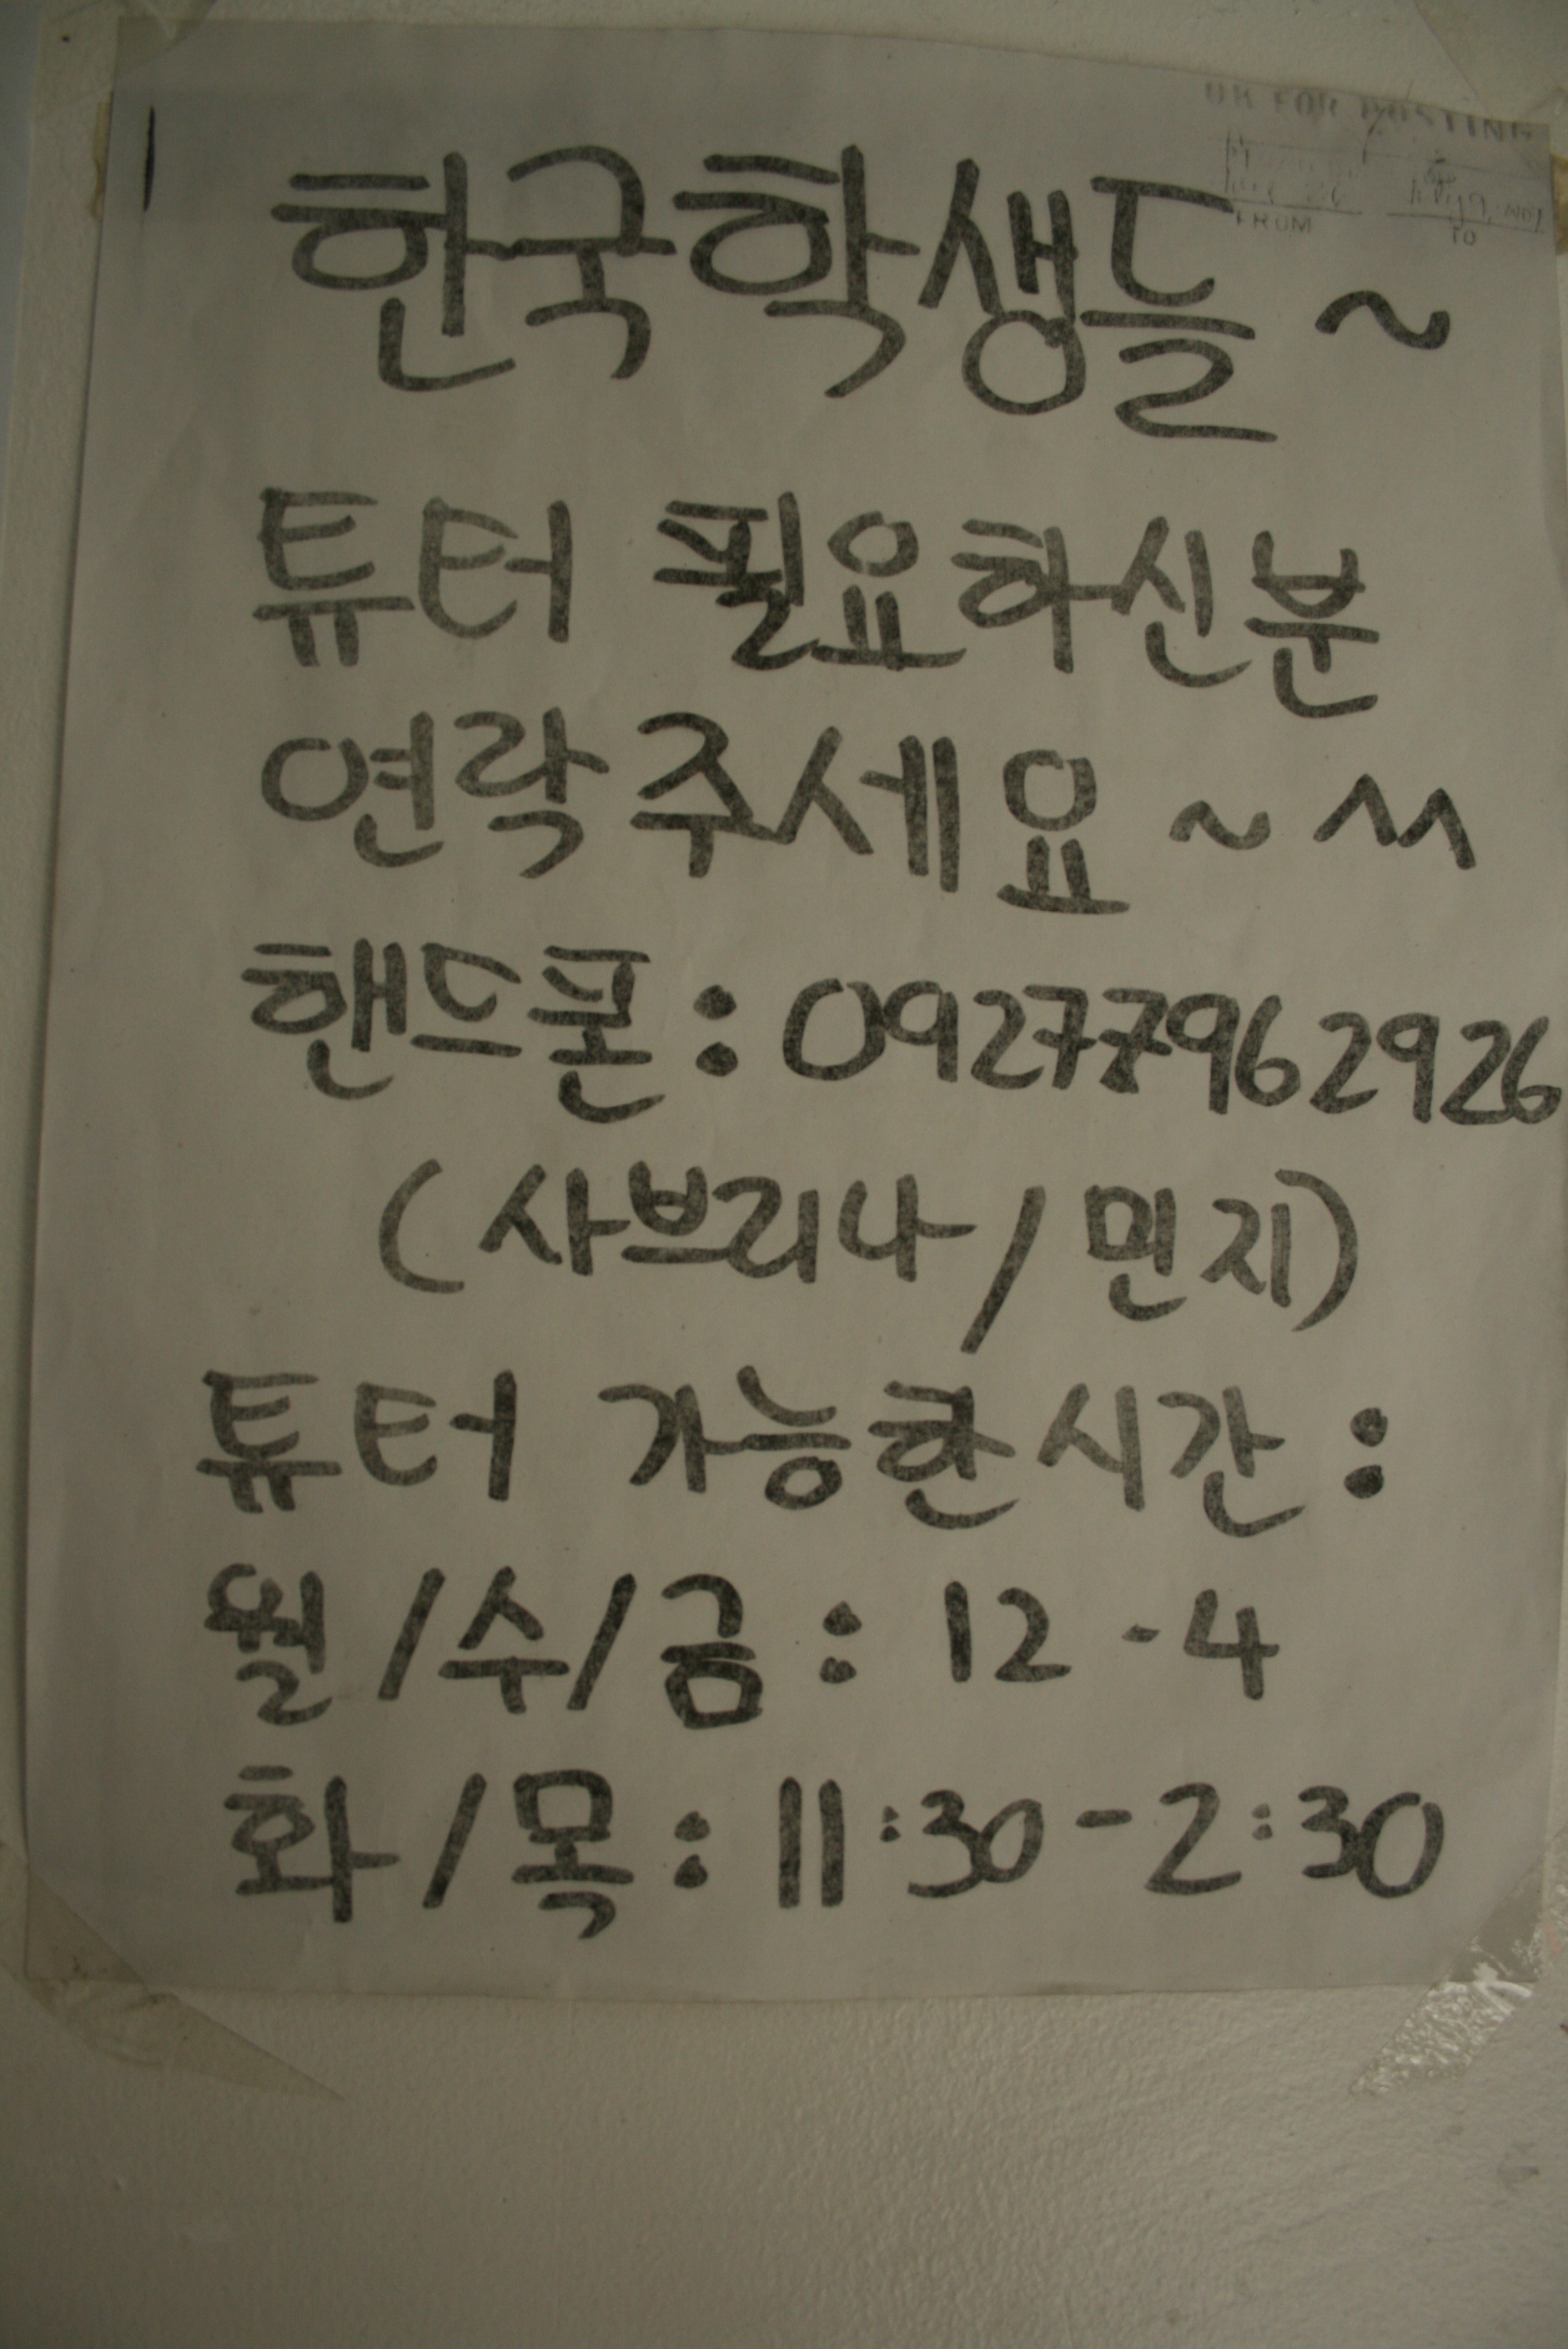 OK FOR POSTING
FROM TO
한국학생들~
튜터 필요하신분
연락주세요~^^
핸드폰: 09277962926
(사브리나/민지)
튜터 가능한시간:
월/수/금: 12-4
화/목: 11:30-2:30